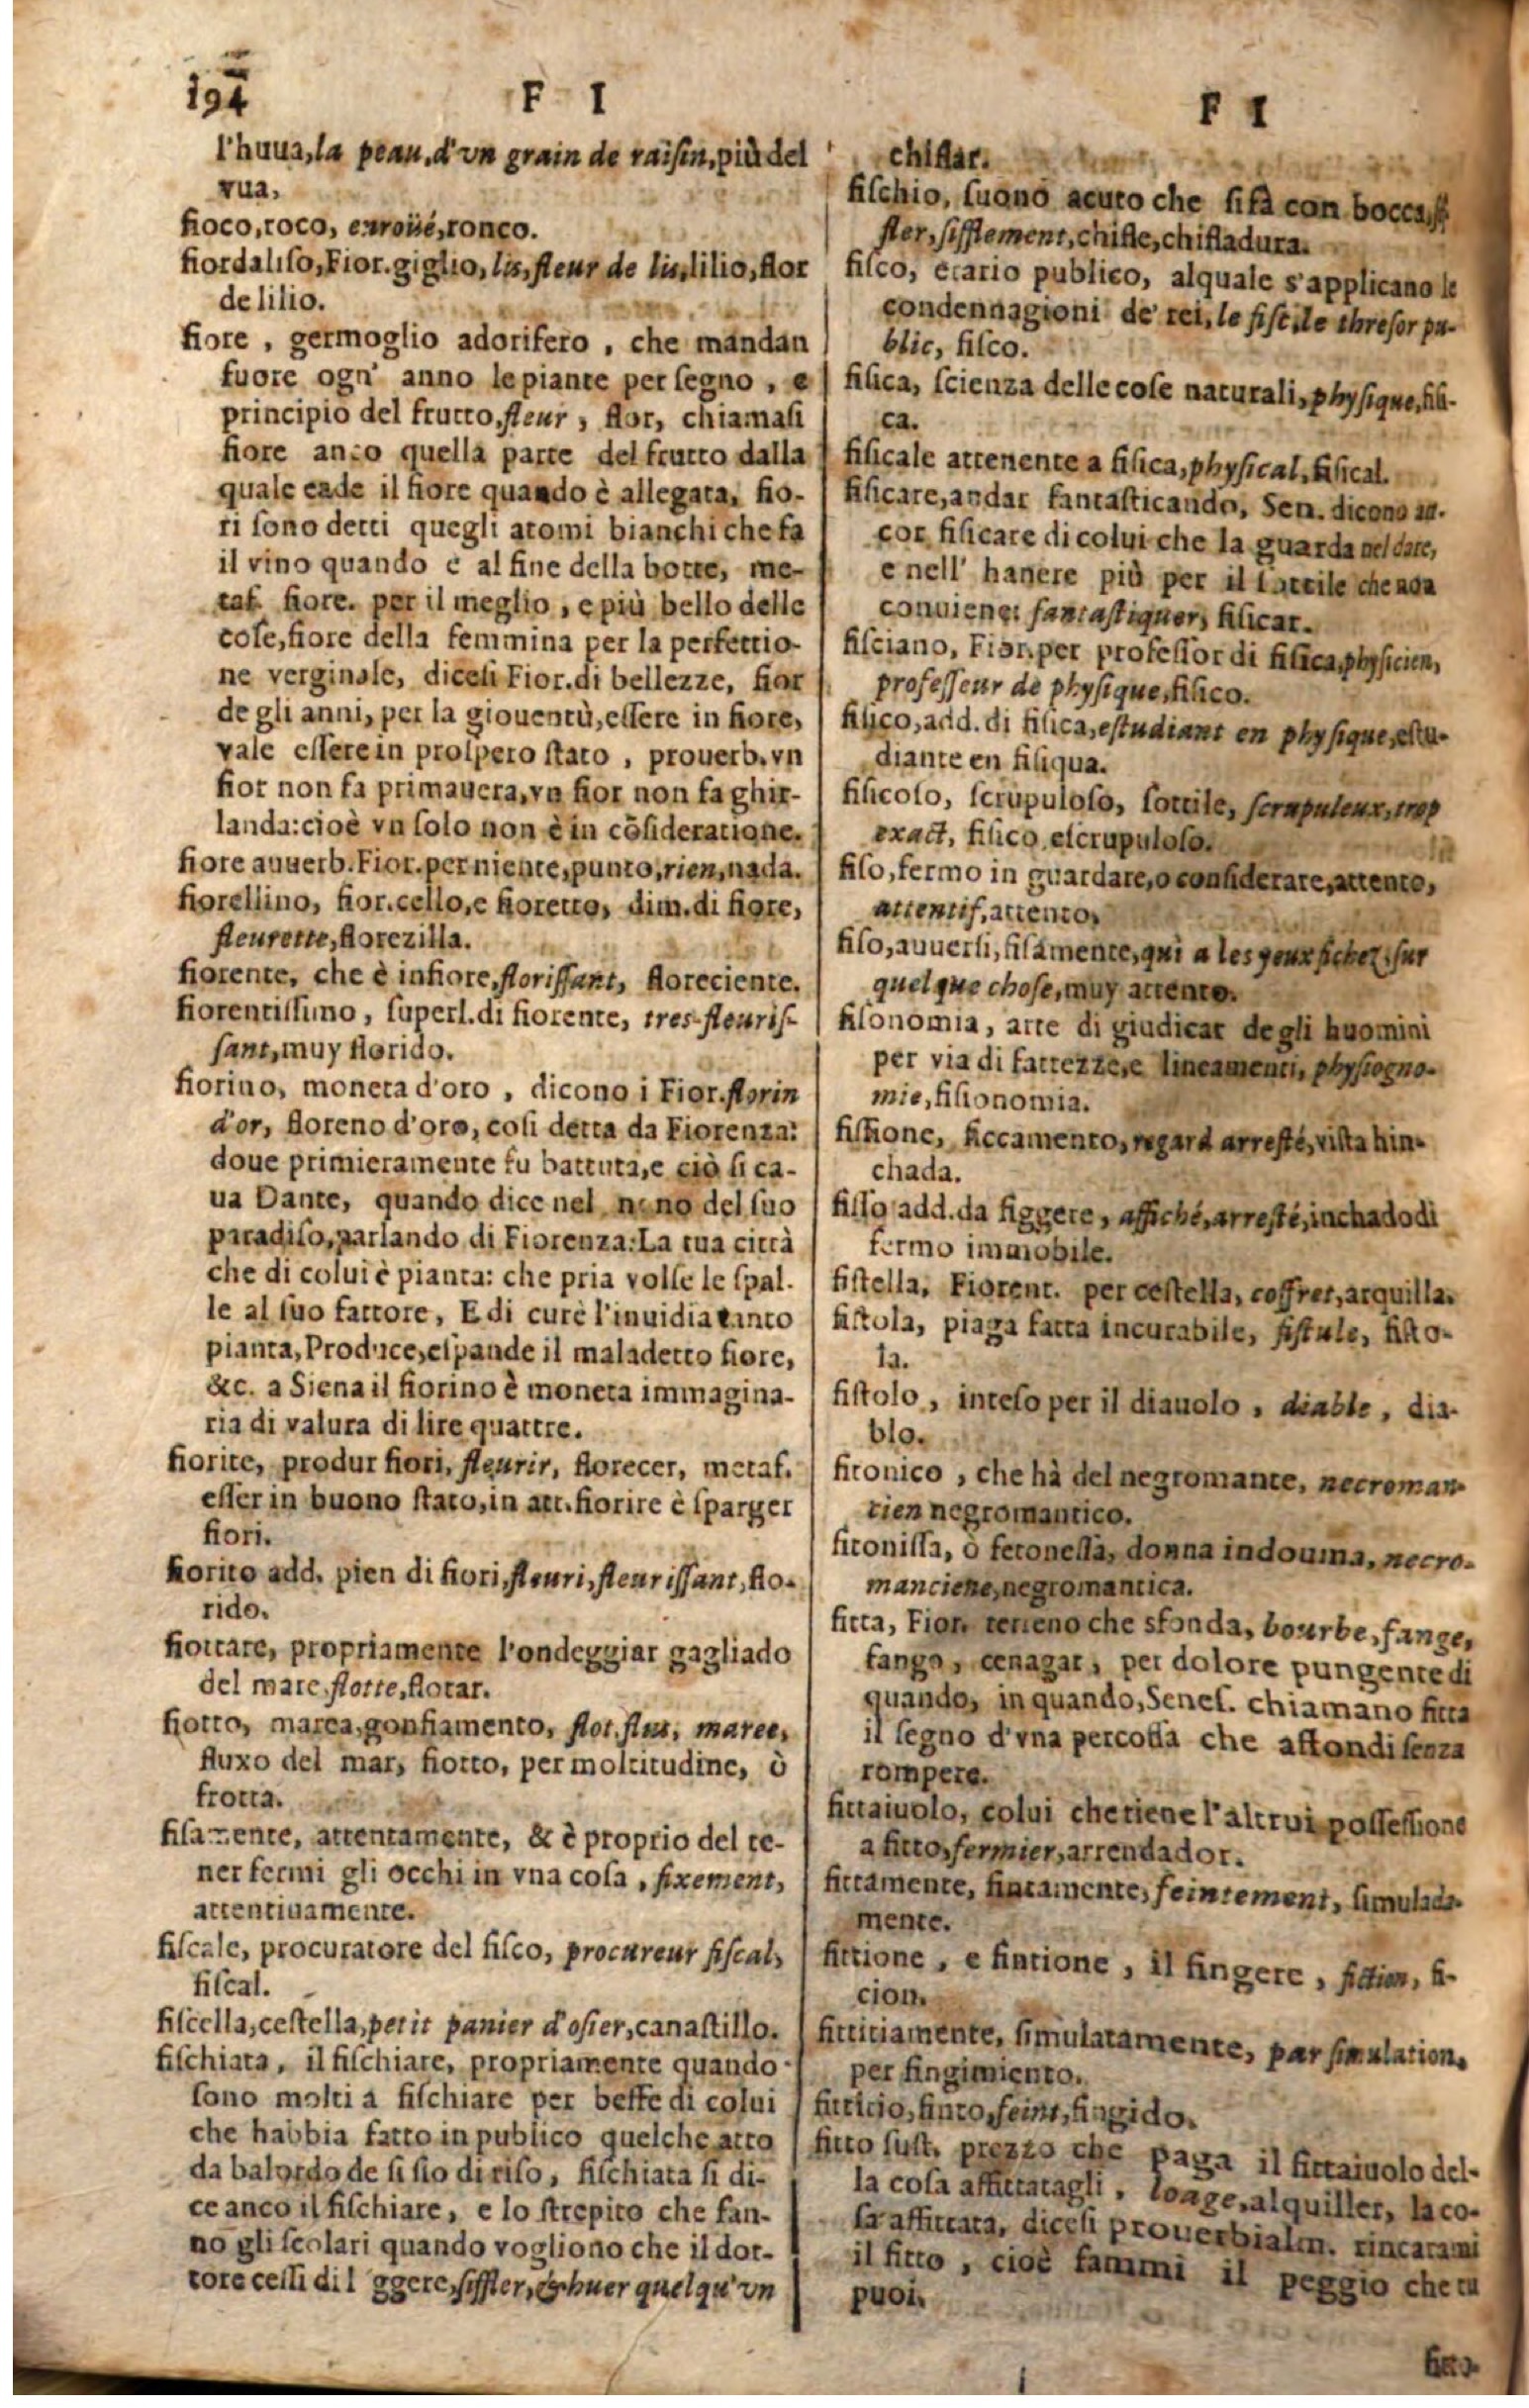 194
F I
l'huua, la peau, d'vn grain de raiſin, più del
vua,
fioco, roco, enroüé, ronco.
fiordaliſo, Fior. giglio, lis, fleur de lis, lilio, flor
de lilio.
fiore , germoglio adorifero , che mandan
fuore ogn' anno le piante per ſegno , e
principio del frutto, fleur , flor, chiamaſi
fiore anco quella parte del frutto dalla
quale cade il fiore quando è allegata, fio-
ri ſono detti quegli atomi bianchi che fa
il vino quando e al fine della botte, me-
taf. fiore. per il meglio , e più bello delle
coſe, fiore della femmina per la perfettio-
ne verginale, diceſi Fior. di bellezze, fior
de gli anni, per la giouentù, eſſere in fiore,
vale eſſere in proſpero ſtato , prouerb. vn
fior non fa primauera, vn fior non fa ghir-
landa: cioè vn ſolo non è in cõſideratione.
fiore auuerb. Fior. per niente, punto, rien, nada.
fiorellino, fior.cello, e fioretto, dim. di fiore,
fleurette, florezilla.
fiorente, che è in fiore, floriſſant, floreciente.
fiorentiſſimo , ſuperl. di fiorente, tres-fleuriſ-
ſant, muy florido.
fiorino, moneta d'oro , dicono i Fior. florin
d'or, floreno d'oro, coſi detta da Fiorenza:
doue primieramente fu battuta, e ciò ſi ca-
ua Dante, quando dice nel nono del ſuo
paradiſo, parlando di Fiorenza: La tua città
che di colui è pianta: che pria volſe le ſpal.
le al ſuo fattore, E di cui è l'inuidia tanto
pianta, Produce, eſpande il maladetto fiore,
&c. a Siena il fiorino è moneta immagina-
ria di valura di lire quattre.
fiorire, produr fiori, fleurir, florecer, metaf.
eſſer in buono ſtato, in att. fiorire è ſparger
fiori.
fiorito add. pien di fiori, fleuri, fleuriſſant, flo-
rido.
fiottare, propriamente l'ondeggiar gagliado
del mare, flotte, flotar.
fiotto, marea, gonfiamento, flot, flus, maree,
fluxo del mar, fiotto, per moltitudine, ò
frotta.
fiſamente, attentamente, & è proprio del te-
ner fermi gli occhi in vna coſa , fixement,
attentiuamente.
fiſcale, procuratore del fiſco, procureur fiſcal,
fiſcal.
fiſcella, ceſtella, petit panier d'oſier, canaſtillo.
fiſchiata , il fiſchiare, propriamente quando
ſono molti a fiſchiare per beffe di colui
che habbia fatto in publico quelche atto
da balordo de ſi ſio di riſo , fiſchiata ſi di-
ce anco il fiſchiare, e lo ſtrepito che fan-
no gli ſcolari quando vogliono che il dot-
tore ceſſi di l ggere, ſiffler, & huer quelqu'vn
F I
chiflar.
fiſchio, ſuono acuto che ſi fà con bocca,
fler, ſifflement, chifle, chifladura.
fiſco, erario publico, alquale s'applicano le
condennagioni de' rei, le fiſc, le threſor pu-
blic, fiſco.
fiſica, ſcienza delle coſe naturali, phyſique, fiſi-
ca.
fiſicale attenente a fiſica, phyſical, fiſical.
fiſicare, andar fantaſticando, Sen. dicono an-
cor fiſicare di colui che la guarda nel dare,
e nell' hauere più per il ſottile che non
conuiene: fantaſtiquer, fiſicar.
fiſciano, Fior. per profeſſor di fiſica, phyſicien,
profeſſeur de phyſique, fiſico.
fiſico, add. di fiſica, eſtudiant en phyſique, eſtu-
diante en fiſiqua.
fiſicoſo, ſcrupuloſo, ſottile, ſcrupuleux, trop
exact, fiſico eſcrupuloſo.
fiſo, fermo in guardare, o conſiderare, attento,
attentif, attento,
fiſo, auuerſi, fiſamente, qui a les yeux fichez ſur
quelque choſe, muy attento.
fiſonomia , arte di giudicar de gli huomini
per via di fattezze, e lineamenti, phyſiogno-
mie, fiſionomia.
fiſſione, ficcamento, regard arreſté, viſta hin-
chada.
fiſſo add. da figgere , affiché, arreſté, inchado di
fermo immobile.
fiſtella, Fiorent. per ceſtella, coffret, arquilla.
fiſtola, piaga fatta incurabile, fiſtule, fiſto-
la.
fiſtolo , inteſo per il diauolo , diable , dia-
blo.
fitonico , che hà del negromante, necroman-
tien negromantico.
fitoniſſa, ò fetoneſſa, donna indouina, necro-
manciene, negromantica.
fitta, Fior. terreno che sfonda, bourbe, fange,
fango, cenagar, per dolore pungente di
quando, in quando, Seneſ. chiamano fitta
il ſegno d'vna percoſſa che affondi ſenza
rompere.
fittaiuolo, colui che tiene l'altrui poſſeſſione
a fitto, fermier, arrendador.
fittamente, fintamente, feintement, ſimulada-
mente.
fittione , e fintione , il fingere , fiction, fi-
cion.
fittitiamente, ſimulatamente, par ſimulation,
per fingimiento.
fittitio, finto, feint, fingido.
fitto ſuſt. prezzo che paga il fittaiuolo del-
la coſa affittatagli , loage, alquiller, la co-
ſa affittata, diceſi prouerbialm. rincarami
il fitto , cioè fammi il peggio che tu
puoi.
fitto-